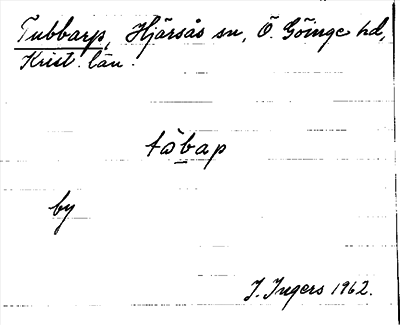 Tubbarp, Hjärsås sn, Ö. Göinge hd,
Krist. län.
tɷbap
by
J. Ingers 1962.